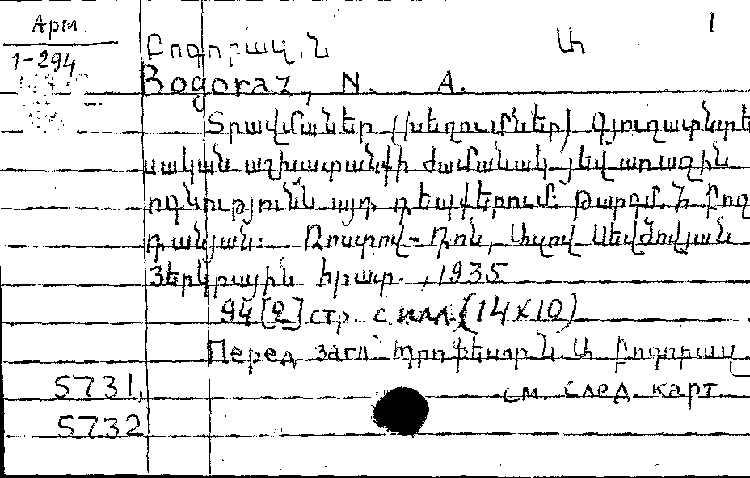 Арм
1-294
1
Բոգորազ, Ն Ա
Bogoraz, N. A.
Տրավմաներ (խեղումներ) գյուղատնտե
սական աշխատանքի ժամանակ յեվ առաջին
ոգնությունն այդ դեպքերում: Թարգմ. Ն Բոգ
դանյան: Ռոստով-Դոն, Ազով Սեվծովյան
Յերկրային հրատ., 1935
94 [2] стр. с илл. (14x10)
Перед загл Պրոֆեսոր Ն Ա Բոգորազ
5731, см. след. карт
5732